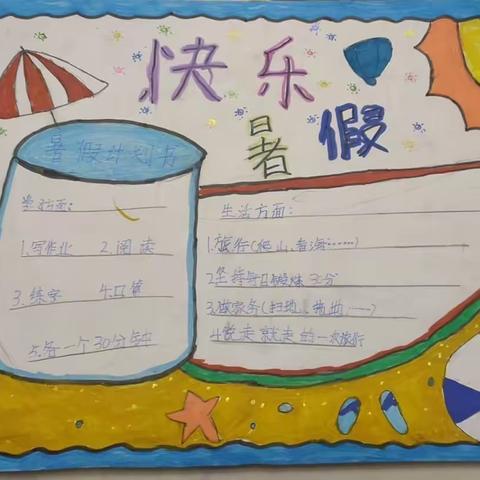 快乐
暑假
暑假计划书
学习方面:
1.写作业 2.阅读
3.练字 4.口算
5.各一个30分钟
生活方面:
1.旅行(爬山、看海……)
2.坚持每日锻炼30分
3.做家务(扫地、拖地……)
4.说走就走的一次旅行